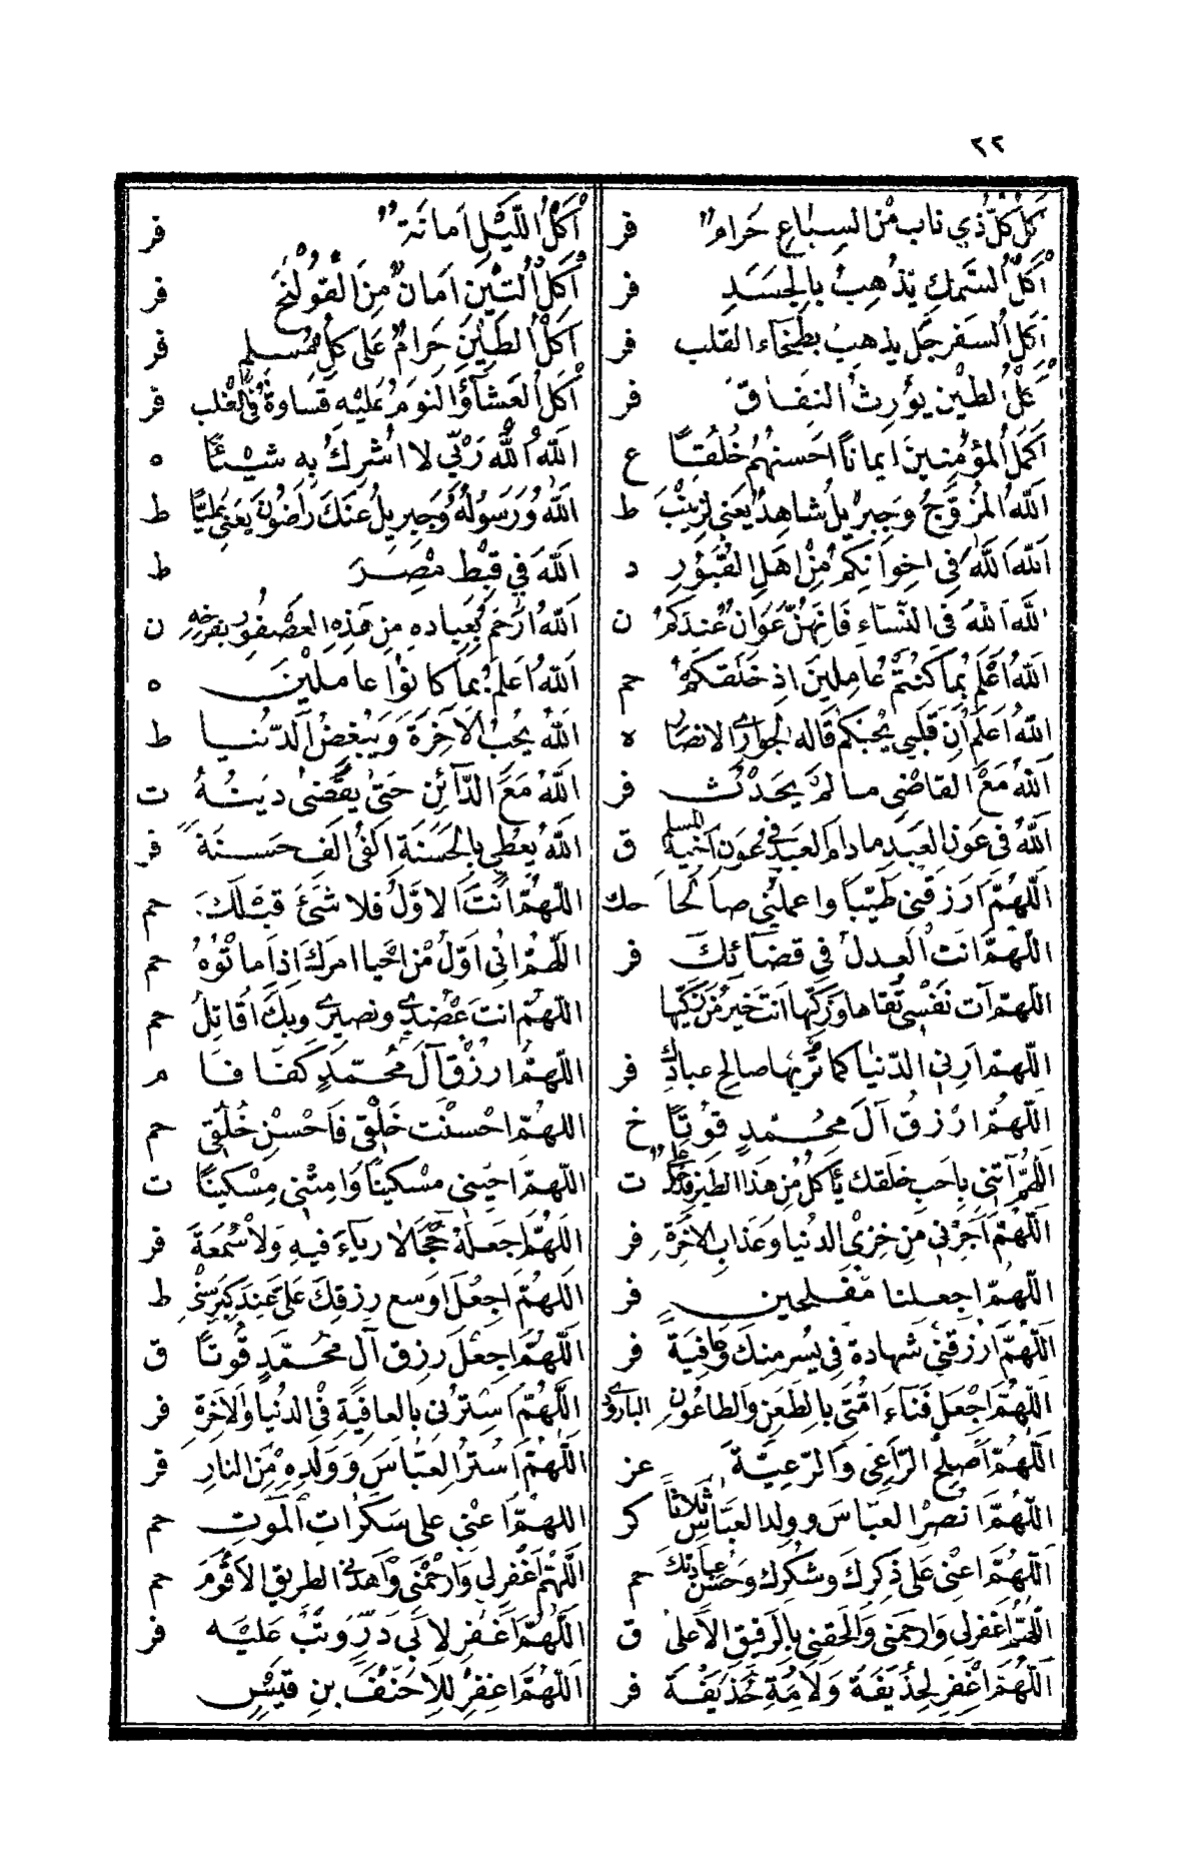 ٢٢
اَكْلُ كُلِّ ذِي نابٍ مِنَ السِباعِ حَرامٌ فر
اَكْلُ السَّمَكِ يُذْهِبُ بِالْجَسَدِ فر
اَكْلُ السَفَرجَلِ يذهِبُ بطَخاء القلب فر
اَكْلُ الطيْنِ يُوْرِثُ النِفَاقَ فر
اَكمَلُ المُؤْمِنِينَ ايمانًا احسنُهُمْ خُلُقًا ع
اَللهُ المُزَوِّجُ وجِبْرِيلُ شاهِدٌ يَعني لِزَيْنَبَ ط
اَللهَ اَللهَ في اخوانِكُم مِنْ اهلِ القُبُوْرِ د
اَللهَ اَللهَ في النِّسَاء فَانهُنَّ عَوَانٌ عِنْدَكُمْ ن
اَللهُ اَعْلَمُ بِمَا كُنتُمْ عَامِلِينَ اِذ خَلَقَكُمْ حم
اَللهُ اَعلَمُ اَنَّ قَلبي يُحِبُكُم قَاله لجواري الانصار ه
اَللهُ مَعَ القاضي ما لم يَحِدْ فر
اَللهُ في عَونِ العَبدِ مادامَ العَبد في عَونِ اَخِيهِ المسلم ق
اَللّهُمَّ ارزقني طَيّبًا واعملني صالحًا حك
اَللّهُمَّ انتَ العدلُ في قضَآئِكَ فر
اَللّهُمّ آت نَفْسي تَقواها وزَكِّها انتَ خَيرُ مَن زَكّٰيها
اَللّهُمّ ارني الدّنيا كما تُرِيها صالح عبادك فر
اَللّهُمّ ارْزُق آلَ مُحَمّدٍ قوتًا خ
اَللّهُمّ آتِني بِاَحَبِّ خَلقك يأكل مِن هذا الطير ت
اَللّهُمّ اَجِرْني مِن خِزيِ الدُنيا وعَذابِ الاخِرَةِ فر
اَللّهُمّ اجعلنا مُفلِحِين فر
اَللّهُمّ ارْزقني شَهادة في يُسر مِنكَ وَعافِيَة فر
اَللّهُمّ اجْعَل فَنَاءَ امّتي بالطَعنِ والطاعُونِ
اَللّهُمّ اَصلِحِ الرّاعِي وَالرّعِيّةَ عز
اَللّهُمّ انصُر العَبّاس وولد العَبّاس ثَلاثًا كر
اَللّهُمّ اعِنّي عَلى ذِكرِكَ وشكرِكَ وحُسن عبادتِك حم
اَللّهُمّ اغفرلي وارحمني وَالحِقني بِالرفيقِ الاَعلى ق
اَللّهُمّ اغْفِر لِحُذَيفَة ولاُمِّةِ حُذَيفَة فر
اَكْلُ اللّيْلِ اَمانَة فر
اَكْلُ التِيْنِ اَمانٌ مِنَ القُوْلَنْجِ فر
اَكْلُ الطِيْنِ حَرامٌ عَلى كُلِّ مُسلِمٍ فر
اَكْلُ العَشَآءِ والنومُ عَليْهِ قَساوَةٌ في القلب فر
اَللهُ اللهُ رَبّي لا اُشركُ بِه شيْئًا ه
اَللهُ وَرَسُولُهُ وَجِبريلُ عَنكَ راضُونَ يَعني عَليًّا ط
اَللهَ في قِبْطِ مِصْرَ ط
اَللهُ ارحَم بعباده مِن هذِهِ العُصفُورِ بفرخه ن
اَللهُ اَعلَمُ بِما كانُوا عامِلِيْنَ ه
اَللهُ يُحِبُ الاَخِرَةَ وَيُبْغِضُ الدّنيا ط
اَللهُ مَعَ الدّآئِنِ حَتى يقضى دَينهُ ت
اَللهُ يُعْطي بِالحَسَنَةِ اَلفَي اَلفِ حَسنَة فر
اَللّهُمّ انتَ الاَوّلُ فلا شَئ قَبْلكَ حم
اَللّهُمّ اني اوّلُ مَنْ احيا امرَكَ اِذ اماتُوهُ حم
اَللّهُمّ انتَ عَضُدي ونصيري وبِكَ اُقاتِلُ حم
اَللّهُمّ ارزُقْ آلَ مُحَمّدٍ كَفَافًا م
اَللّهُمّ احْسَنْتَ خَلْقي فَاَحْسِنْ خُلُقي حم
اَللّهُمّ احيِني مسْكينًا وَامِتْني مِسْكينًا ت
اَللّهُمّ اجعَلهُ حَجًّا لا رياءَ فيهِ ولا سُمْعَة فر
اَللّهُمّ اجعَل اَوسع رِزقِكَ عَلَيّ عِندَ كِبَرِ سِنّي ط
اَللّهُمّ اجعَل رِزق آلِ مُحَمّدٍ قُوتًا ق
اَللّهُمّ استُرني بالعافِيَةِ في الدُنيا والاَخِرَةِ فر
اَللّهُمّ استُر العَبّاسَ وَوَلَدِهِ مِنَ النارِ فر
اَللّهُمّ اَعني على سَكَراتِ المَوتِ حم
اَللّهُمّ اغْفِرلي وارحَمْني واهدِني الطريق الاَقوَمَ حم
اَللّهُمّ اغفِر لاَبي ذَرٍّ وتُبْ عَليْه فر
اَللّهُمّ اغفِرْ للاَحنَف بنِ قَيْسٍ